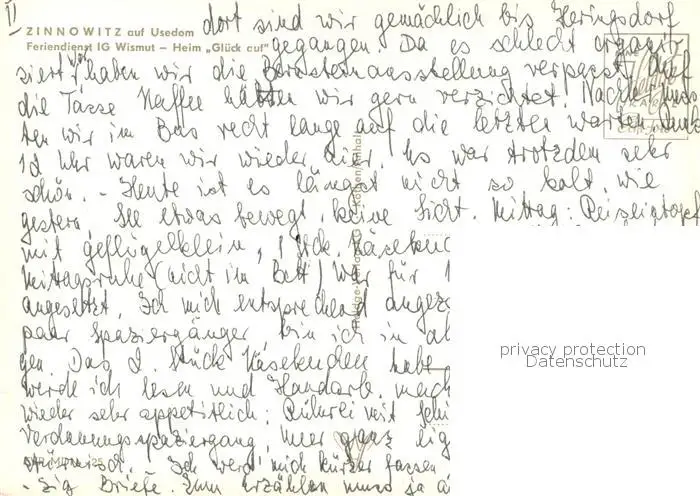 II
ZINNOWITZ auf Usedom
Feriendienst IG Wismut – Heim „Glück auf“
dort sind wir gemächlich bis Heringsdorf
gegangen. Da es schlecht organi-
siert war, haben wir die Bernsteinausstellung verpasst. Auf
die Tasse Kaffee hätten wir gern verzichtet. Nachh. muss
ten wir im Bus recht lange auf die letzten warten.
Uhr waren wir wieder hier. Es war trotzdem sehr
schön. – Heute ist es längst nicht so kalt, wie
gestern. See etwas bewegt, keine Sicht. Mittag: Reiseintopf
mit Geflügelklein, 1 Stck. Käsekuc
Mittagsruhe (nicht im Bett) war für 1
angesetzt. Ich mich entsprechend angezo
paar Spaziergänger, bin ich in
gen. Das 2. Stück Käsekuchen habe
werde ich lesen und Handarb. mach
wieder sehr appetitlich: Rührei mit
Verdauungsspaziergang, Meer ganz
Ich werd' mich kürzer fassen
Briefe. Zum Erzählen muss ja a
privacy protection
Datenschutz